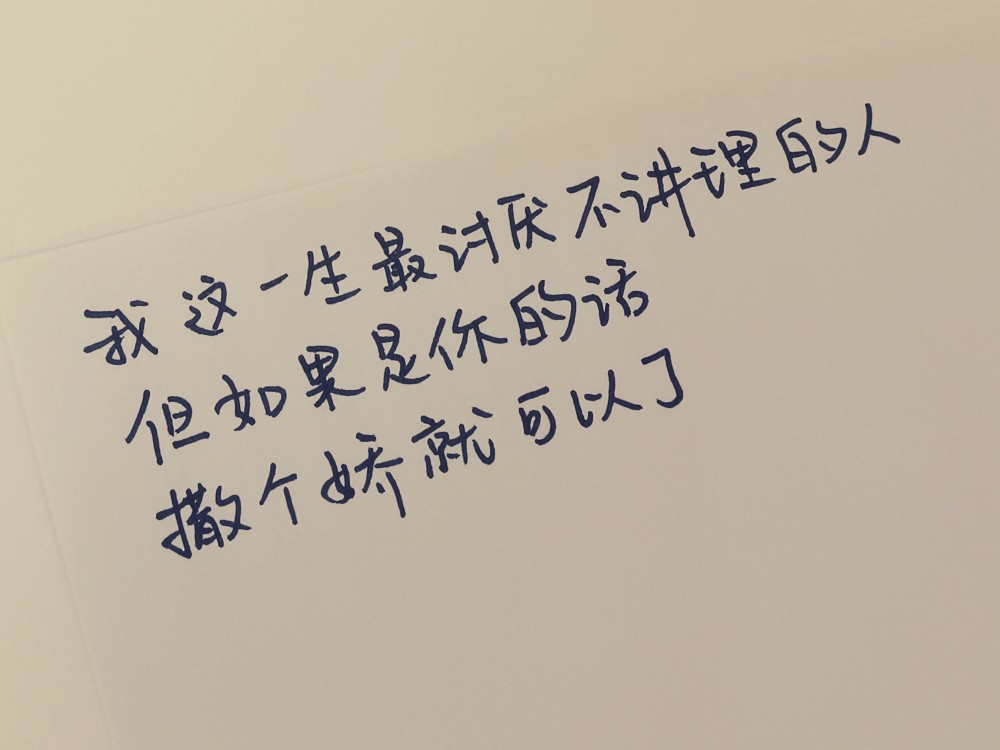 我这一生最讨厌不讲理的人
但如果是你的话
撒个娇就可以了